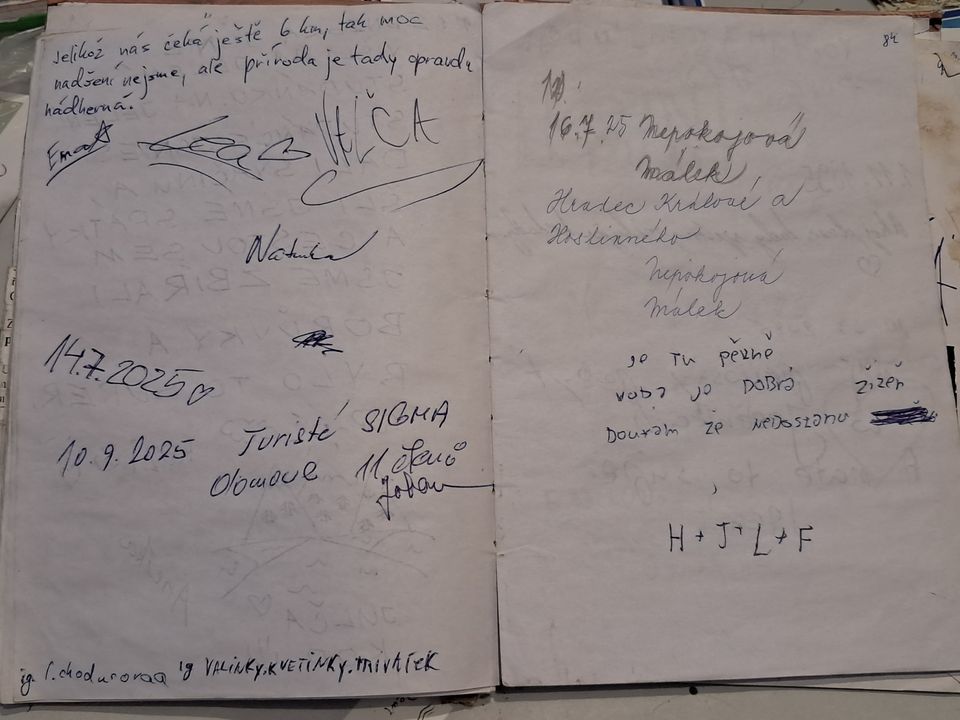 Jelikož nás čeká ještě 6 km, tak moc
nadšení nejsme, ale příroda je tady opravdu
nádherná.
Ema
VALČA
Natálka
14.7.2025
10.9.2025 Turisté SIGMA
Olomouc 11 členů
ig. l.chodurovaa ig VALINKY.KVETINKY.PRIVATEK
84
16.7.25 Nepokojová
Málek
Hradec Králové a
Hostinného
Nepokojová
Málek
Je tu pěkně
voda je dobrá žízeň
Doufám že nedostanu
H + J + L + F